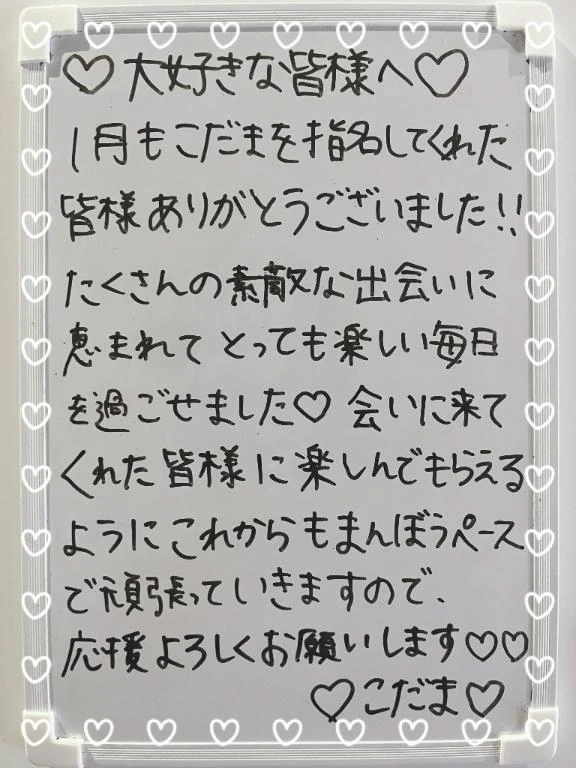 ♡大好きな皆様へ♡
1月もこだまを指名してくれた
皆様ありがとうございました!!
たくさんの素敵な出会いに
恵まれてとっても楽しい毎日
を過ごせました♡ 会いに来て
くれた皆様に楽しんでもらえる
ようにこれからもまんぼうペース
で頑張っていきますので、
応援よろしくお願いします♡♡
♡こだま♡